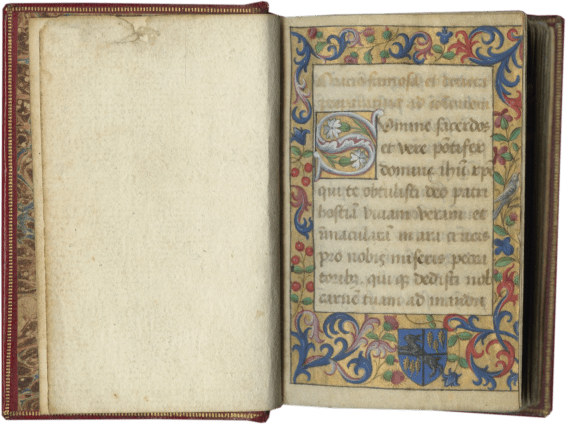 et deuota
ad
Summe sacerdos
et vere pōtifex
domine ihu xpe
qui te obtulisti deo patri
hostiā viuam veram et
īmaculatā in ara crucis
pro nobis miseris pecca
toribꝫ qui dedisti nob
carnē tuam ad mandu